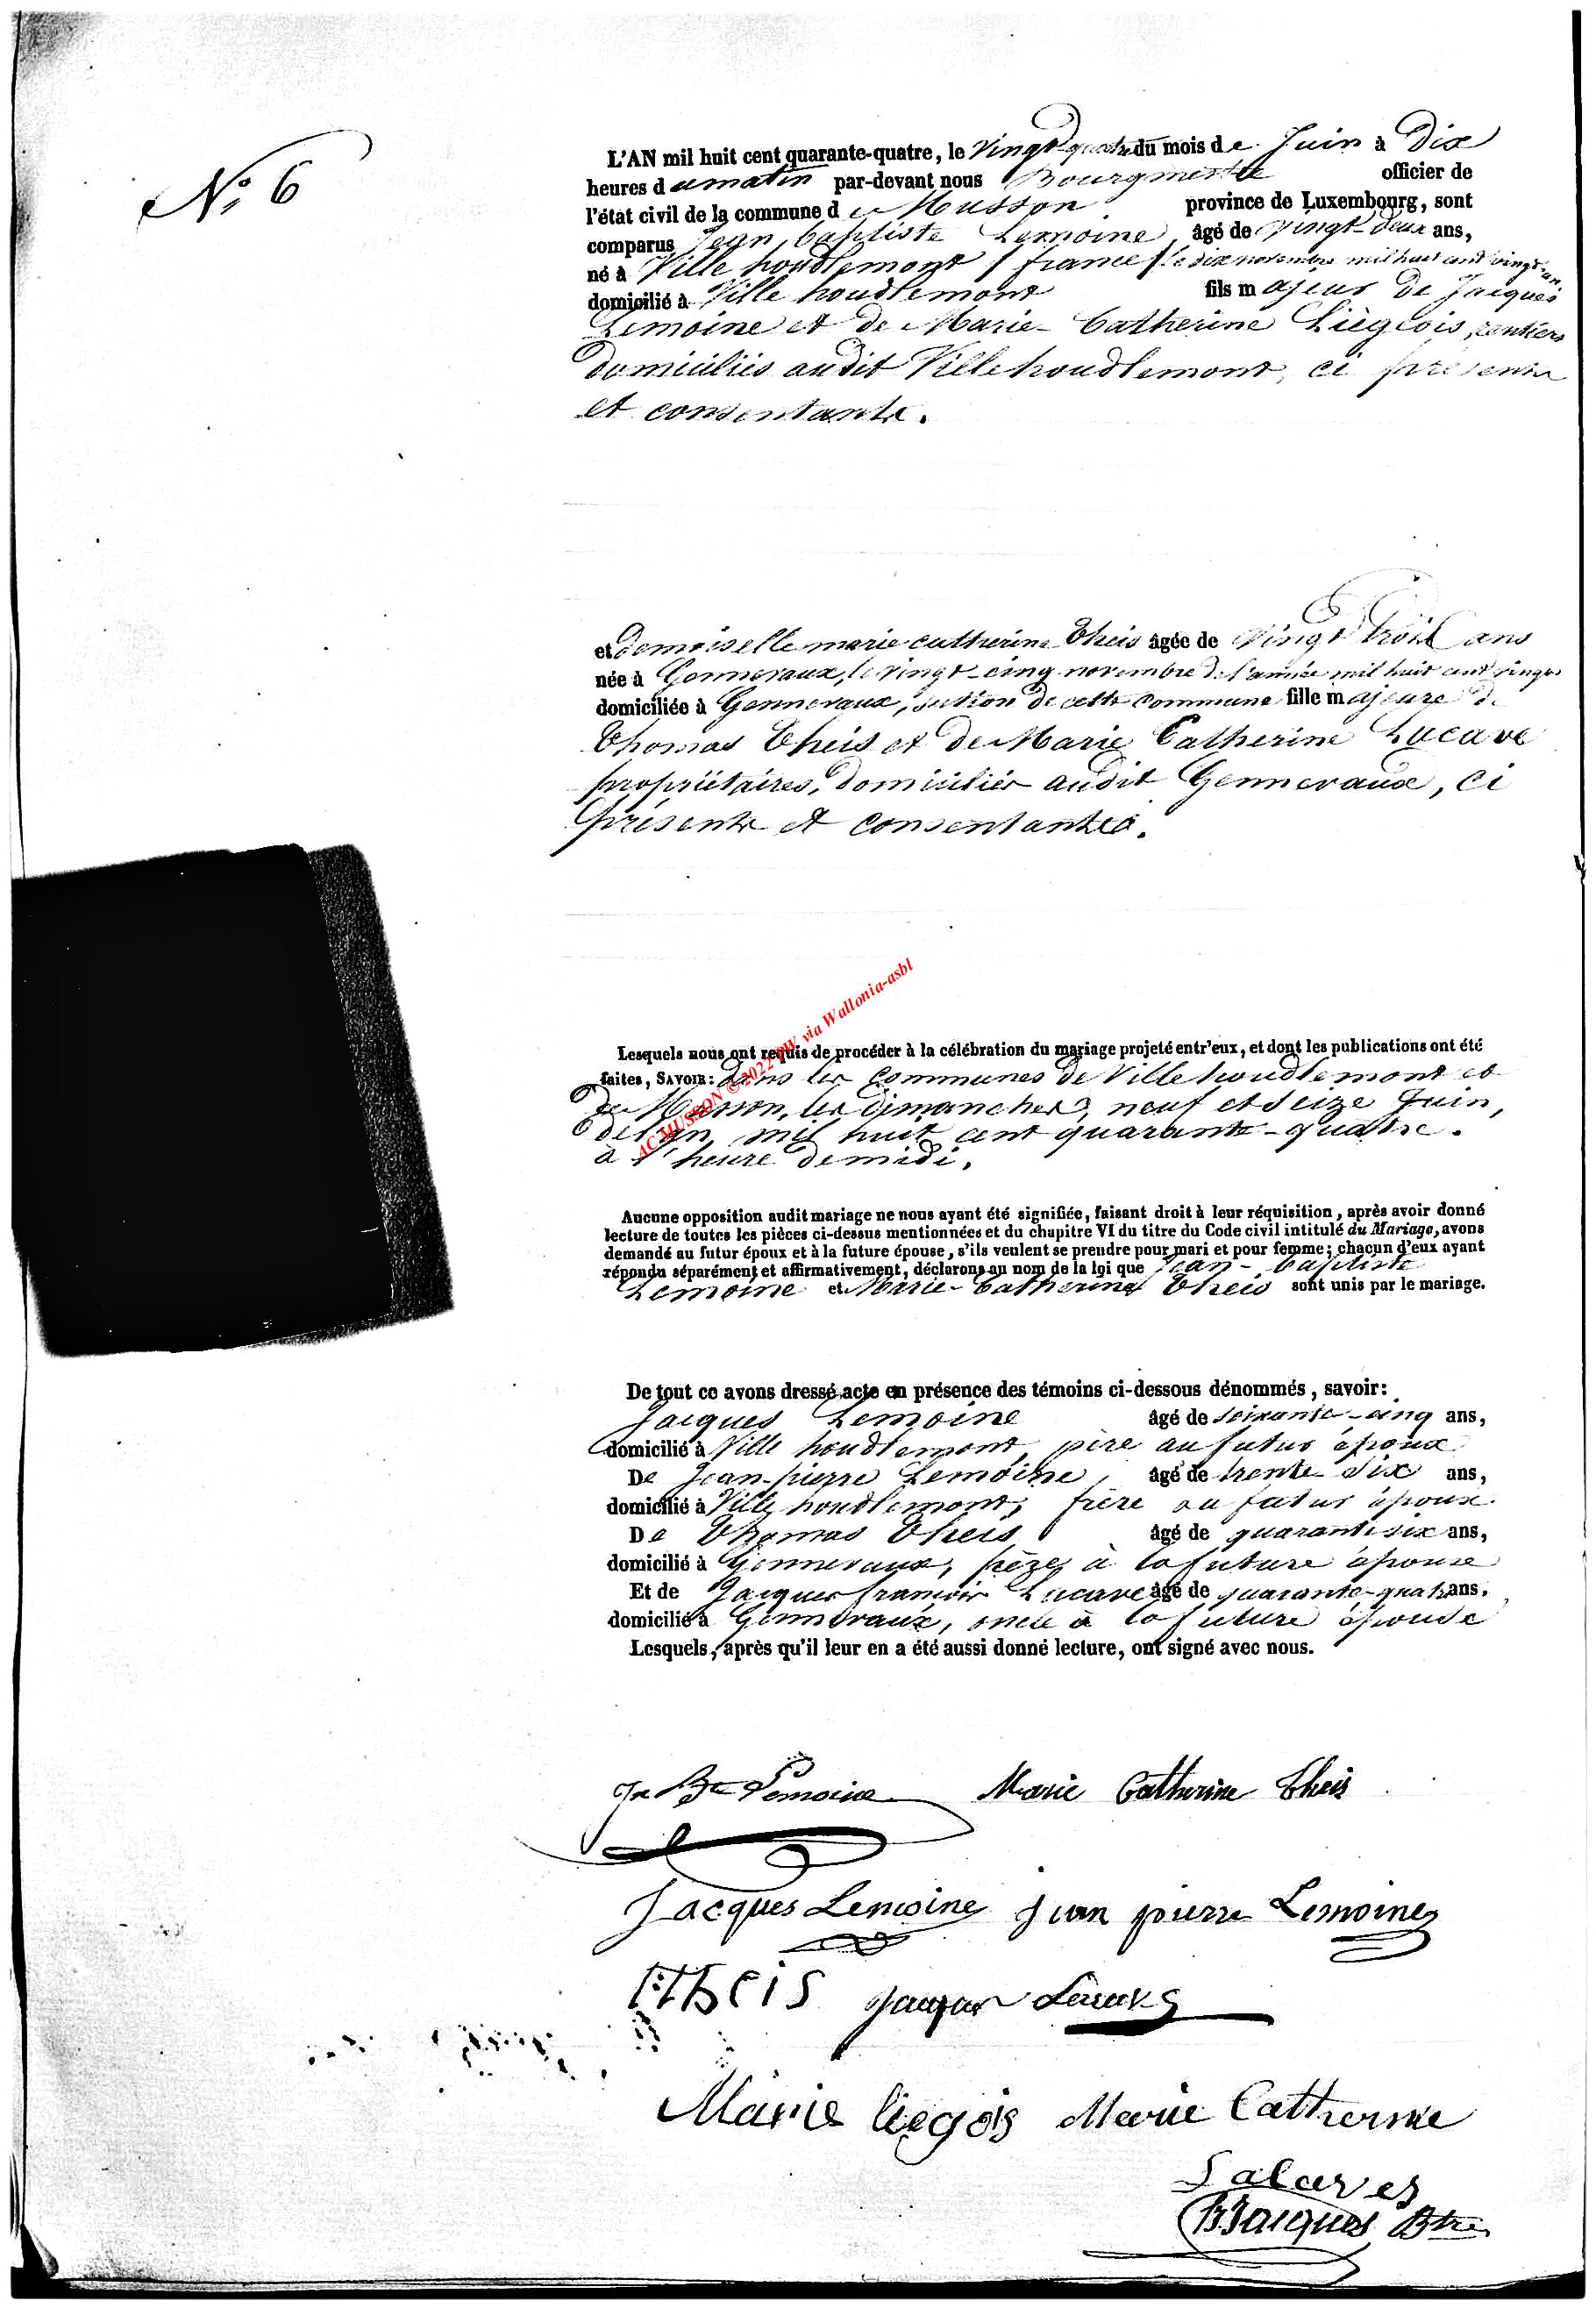 N° 6
L'AN mil huit cent quarante-quatre, le vingt quatre du mois de Juin à Dix
heures du matin par-devant nous Bourgmestre officier de
l'état civil de la commune de Musson province de Luxembourg, sont
comparus Jean baptiste Lemoine, âgé de vingt-deux ans,
né à Ville houdlemont / france / le dix novembre mil huit cent vingt-un,
domicilié à Ville houdlemont fils majeur de Jacques
Lemoine et de Marie-Catherine Liègeois, rentiers
domiciliés audit Ville houdlemont, ci présents
et consentants.
et demoiselle marie catherine Theis âgée de vingt trois ans
née à Gennevaux, le vingt-cinq novembre de l'année mil huit cent vingt
domiciliée à Gennevaux, section de cette commune fille majeure de
Thomas Theis et de Marie Catherine Lacave
propriétaires, domiciliés audit Gennevaux, ci
présents et consentants.
Lesquels nous ont requis de procéder à la célébration du mariage projeté entr'eux, et dont les publications ont été
faites, SAVOIR: dans les communes de Ville houdlemont et
de Musson, les dimanches, neuf et seize Juin,
de l'an mil huit cent quarante-quatre.
à l'heure de midi.
AC MUSSON © 2022 PW via Wallonia-asbl
Aucune opposition audit mariage ne nous ayant été signifiée, faisant droit à leur réquisition, après avoir donné
lecture de toutes les pièces ci-dessus mentionnées et du chapitre VI du titre du Code civil intitulé du Mariage, avons
demandé au futur époux et à la future épouse, s'ils veulent se prendre pour mari et pour femme; chacun d'eux ayant
répondu séparément et affirmativement, déclarons au nom de la loi que Jean-baptiste
Lemoine et Marie-Catherine Theis sont unis par le mariage.
De tout ce avons dressé acte en présence des témoins ci-dessous dénommés, savoir:
Jacques Lemoine âgé de soixante-cinq ans,
domicilié à Ville houdlemont, père au futur époux
De Jean-pierre Lemoine, âgé de trente six ans,
domicilié à Ville houdlemont, frère au futur époux.
De Thomas Theis âgé de quarante six ans,
domicilié à Gennevaux, père à la future épouse
Et de Jacques françois Lacave âgé de quarante-quatre ans.
domicilié à Gennevaux, oncle à la future épouse
Lesquels, après qu'il leur en a été aussi donné lecture, ont signé avec nous.
Jn Bte Lemoine Marie Catherine Theis
Jacques Lemoine jean pierre Lemoine
Theis jacques
Marie liegois Marie Catherine
Jacques Btre